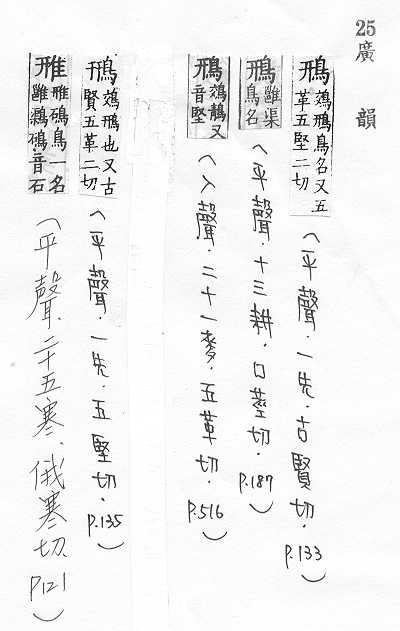 25
廣韻
鳽 鵁鳽鳥名又五革五堅二切(平聲.一先.古賢切.P.133)
鳽 雝渠鳥名(平聲.十三耕.口莖切.P.187)
鳽 鵁鶄又音堅(入聲.二十一麥.五革切.P.516)
鳽 鵁鳽也又古賢五革二切(平聲.一先.五堅切.P.135)
雃 雃鳥一名雝音石(平聲.二十五寒.俄寒切.P121)